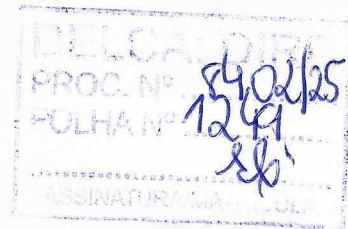 DELCA-DIRA
PROC. Nº 8402/25
FOLHA Nº 1249
ASSINATURA/MATRÍCULA